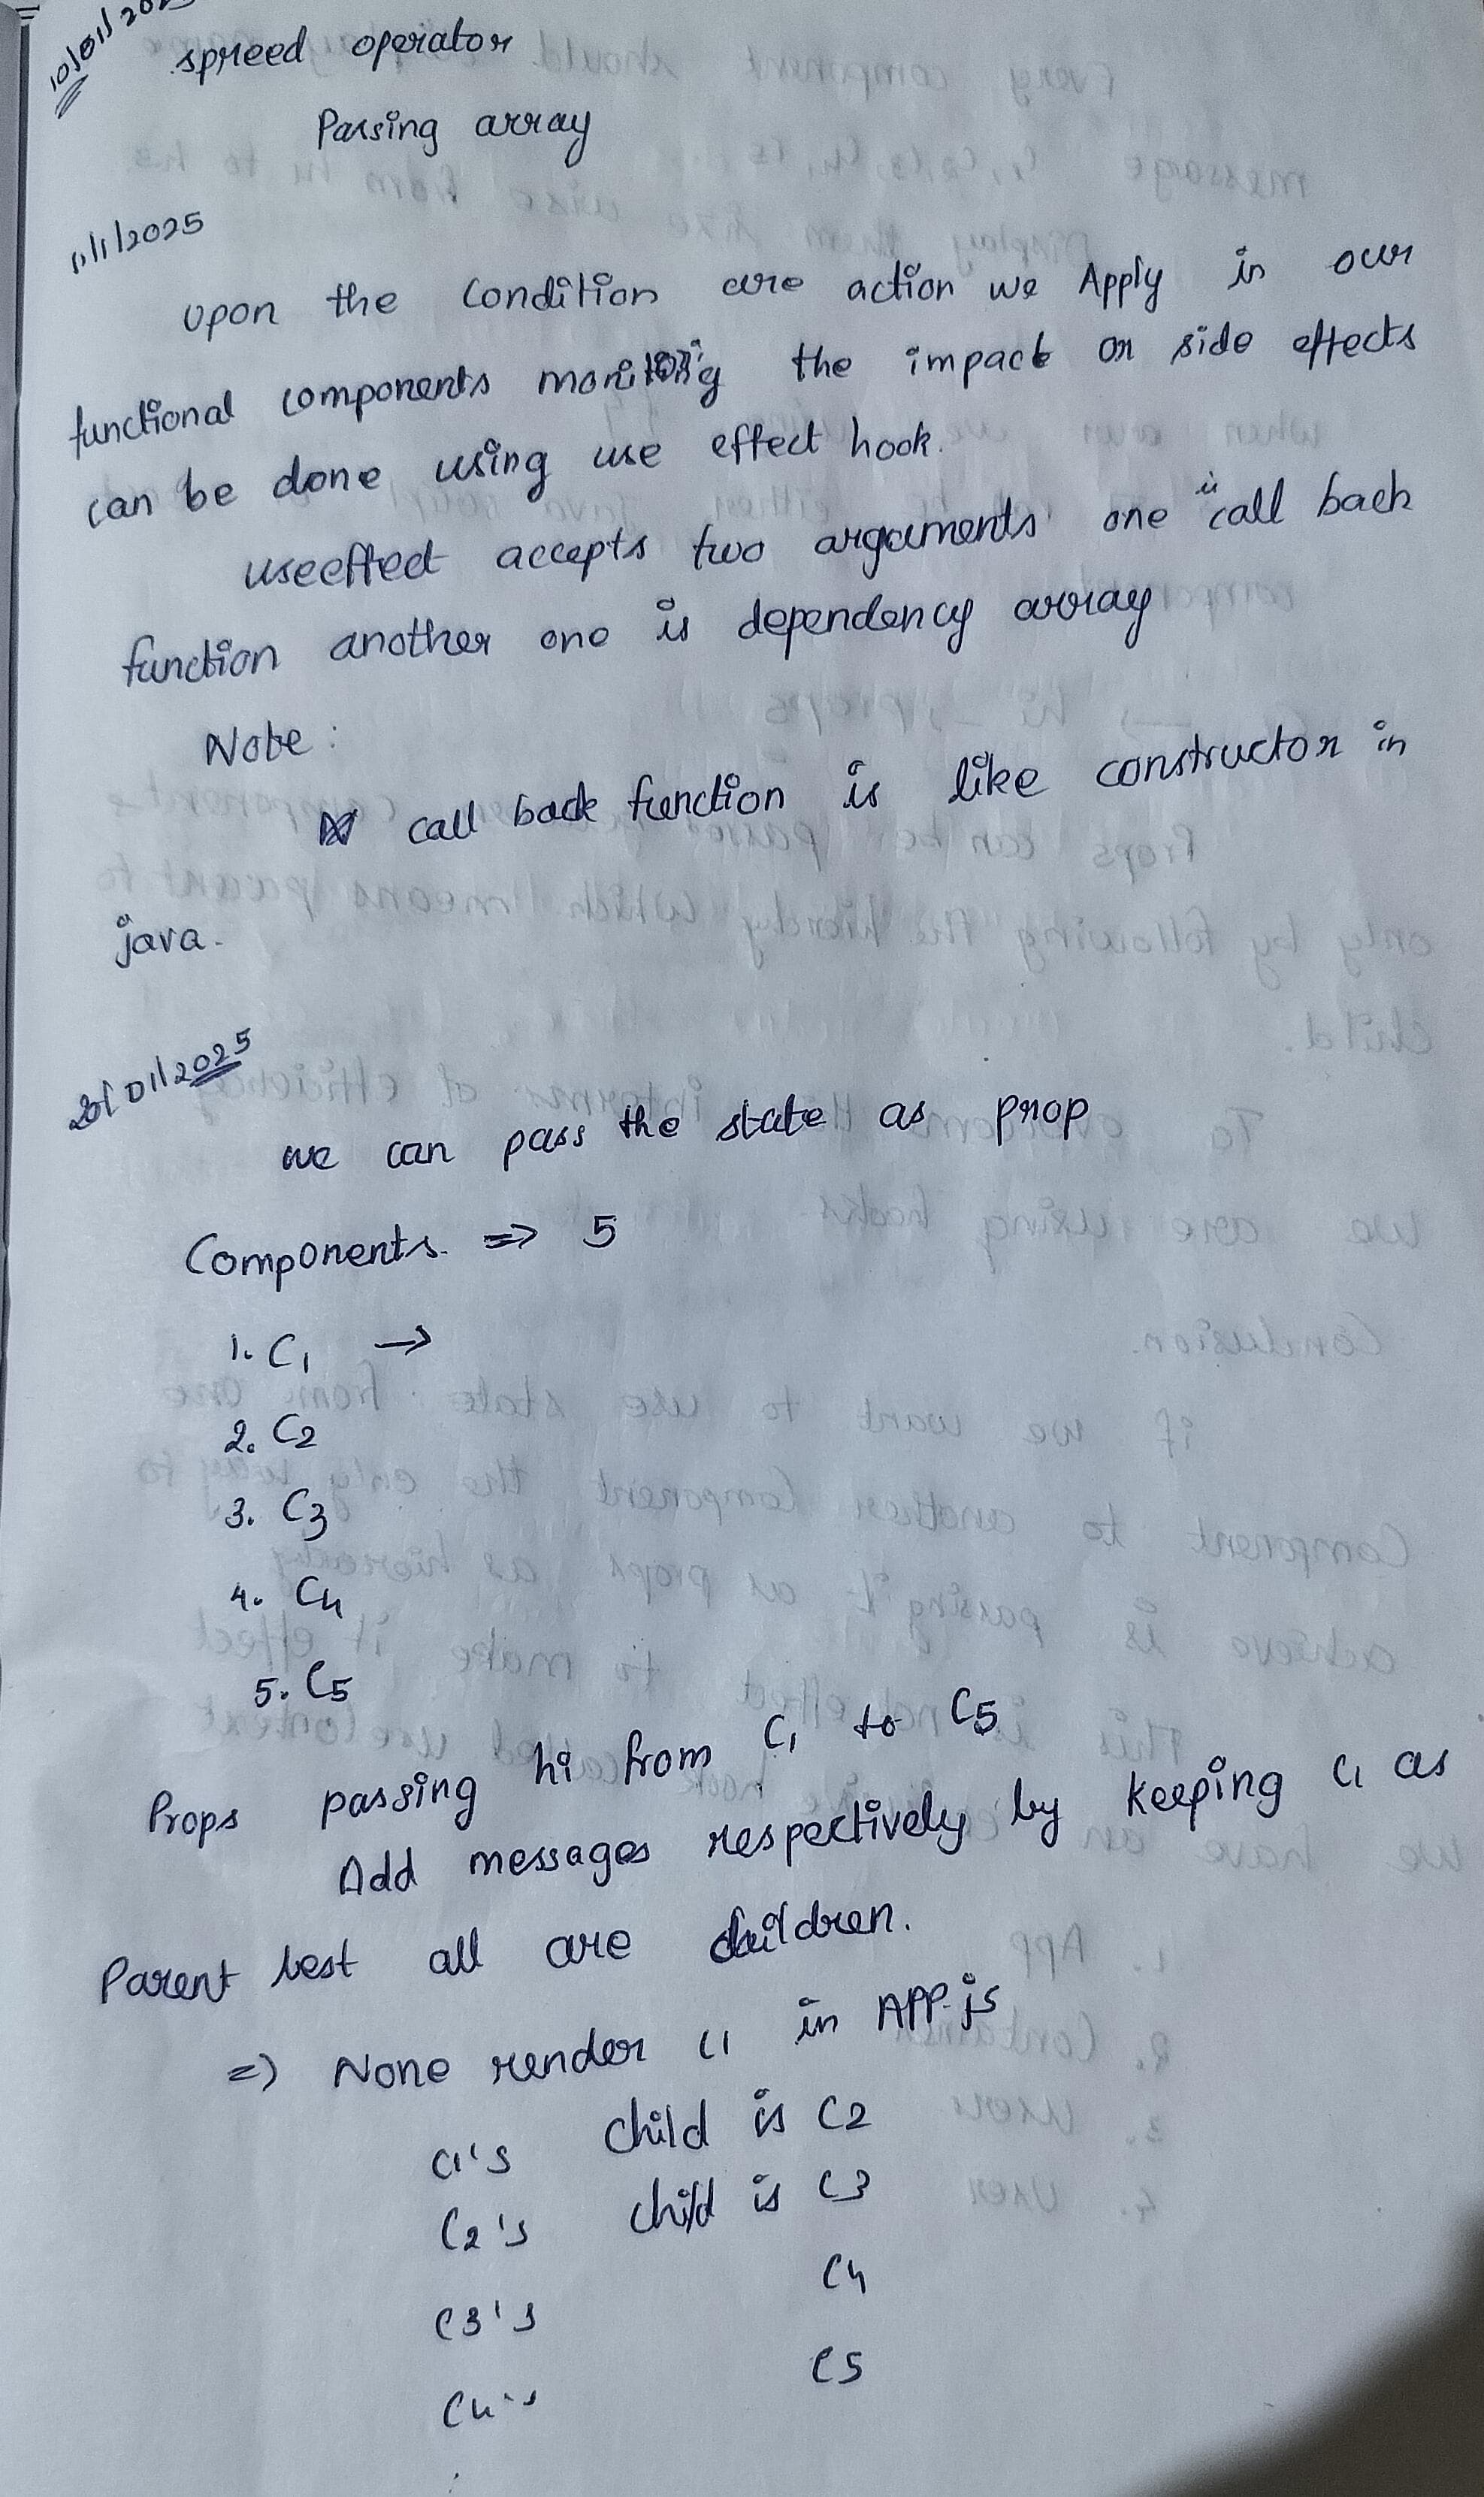 10/01/20
spreed operator
Passing array
11/1/2025
upon the condition are action we Apply in our
functional components monitoring the impact or side effects
can be done using use effect hook.
useeffect accepts two arguments one is call back
function another one is dependency array
Note :
call back function is like constructor in
java.
20/01/2025
we can pass the state as prop
Components => 5
1. C1 →
2. C2
3. C3
4. C4
5. C5
Props passing hi from C1 to C5
Add messages respectively by keeping C1 as
Parent rest all are children.
=> None render C1 in APP.js
C1's child is C2
C2's child is C3
C3's C4
C4's C5